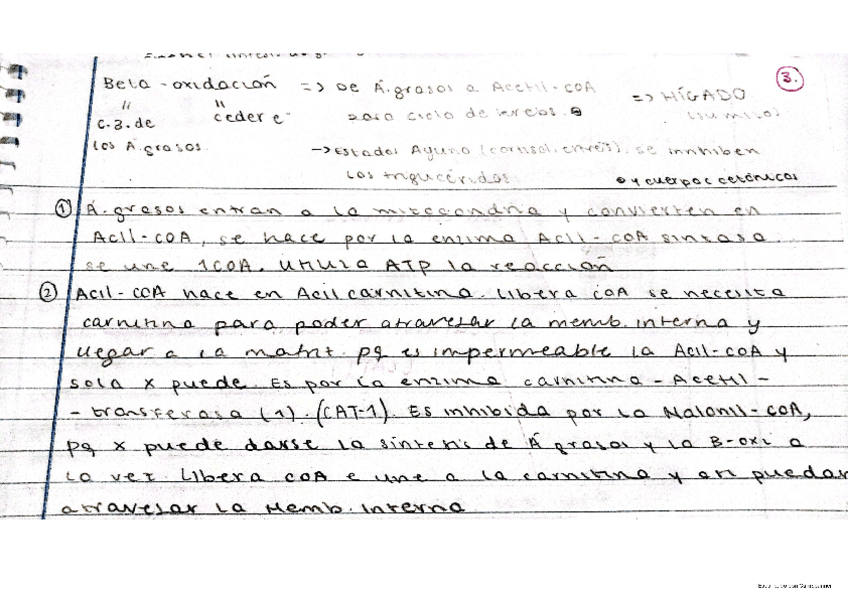 Beta-oxidación => De Á.grasos a Acetil-COA => HÍGADO 3.
" " 
C.B. de ceder e⁻ para ciclo de
los Á.grasos. -> Estados Ayuno se innhiben
los triglicéridos. y cuerpos cetónicos
① Á.grasos entran a la mitocondria y convierten en
Acil-COA, se hace por la enzima Acil-COA sintasa.
se une 1COA. Utiliza ATP la reacción
② Acil-COA hace en Acilcarnitina. Libera COA se necesita
carnitina para poder atravesar la memb. interna y
llegar a la matriz. pq es impermeable la Acil-COA y
sola x puede. Es por la enzima carnitina-Acetil-
-transferasa (1). (CAT-1). Es inhibida por la Malonil-COA,
pq x puede darse la síntesis de Á grasos y la B-oxi a
la vez. Libera COA e une a la carnitina y así puedan
atravesar la Memb. Interna.